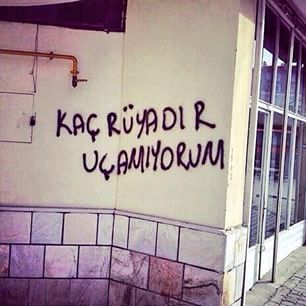 KAÇ RÜYADIR
UÇAMIYORUM